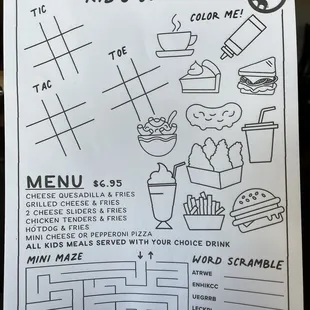 KID'S
TIC
COLOR ME!
TOE
TAC
MENU $6.95
CHEESE QUESADILLA & FRIES
GRILLED CHEESE & FRIES
2 CHEESE SLIDERS & FRIES
CHICKEN TENDERS & FRIES
HOTDOG & FRIES
MINI CHEESE OR PEPPERONI PIZZA
ALL KIDS MEALS SERVED WITH YOUR CHOICE DRINK
MINI MAZE
WORD SCRAMBLE
ATRWE
ENHIKCC
UEGRRB